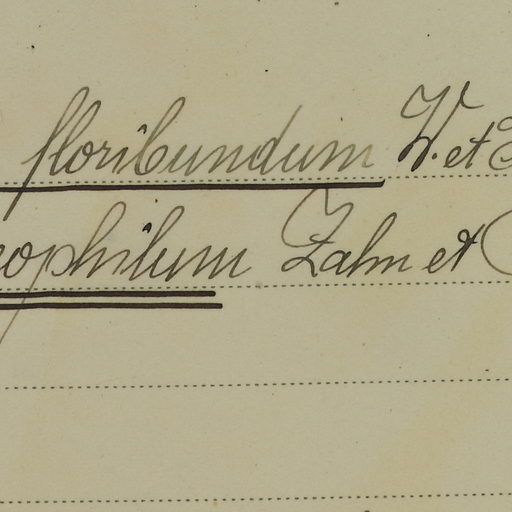 floribundum W. et
ophilum Zahn et